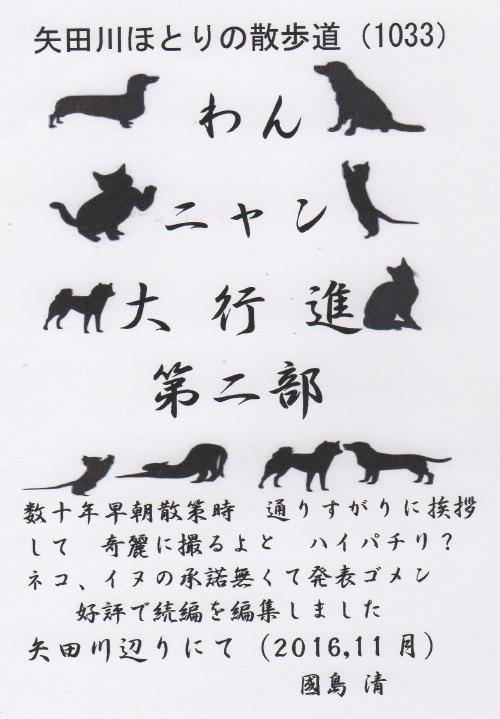 矢田川ほとりの散歩道（1033）
わん
ニャン
大行進
第二部
数十年早朝散策時　通りすがりに挨拶
して　奇麗に撮るよと　ハイパチリ？
ネコ、イヌの承諾無くて発表ゴメン
好評で続編を編集しました
矢田川辺りにて（2016,11月）
國島 清